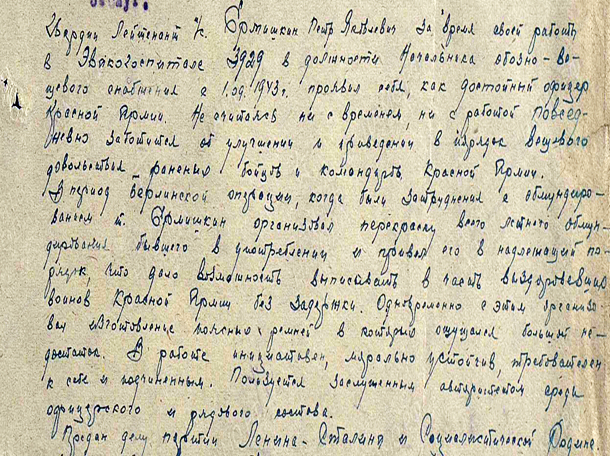 Гвардии Лейтенант /с Ермишкин Петр Яковлевич за время своей работы
в Эвакогоспитале 3929 в должности Начальника обозно-ве-
щевого снабжения с 1.09.1943г. проявил себя, как достойный офицер
Красной Армии. Не считаясь ни с временем, ни с работой повсед-
невно заботится об улучшении и приведении в порядок вещевого
довольствия раненых бойцов и командиров Красной Армии.
В период Берлинской операции, когда были затруднения с обмундиро-
ванием т. Ермишкин организовал перекраску всего летнего обмун-
дирования бывшего в употреблении и привел его в надлежащий по-
рядок, что дало возможность выписывать в часть выздоровевших
воинов Красной Армии без задержки. Одновременно с этим организо-
вал изготовление поясных ремней в которых ощущался большой не-
достаток. В работе инициативен, морально устойчив, требователен
к себе и подчиненным. Пользуется заслуженным авторитетом среди
офицерского и рядового состава.
Предан делу партии Ленина-Сталина и Социалистической Родине.